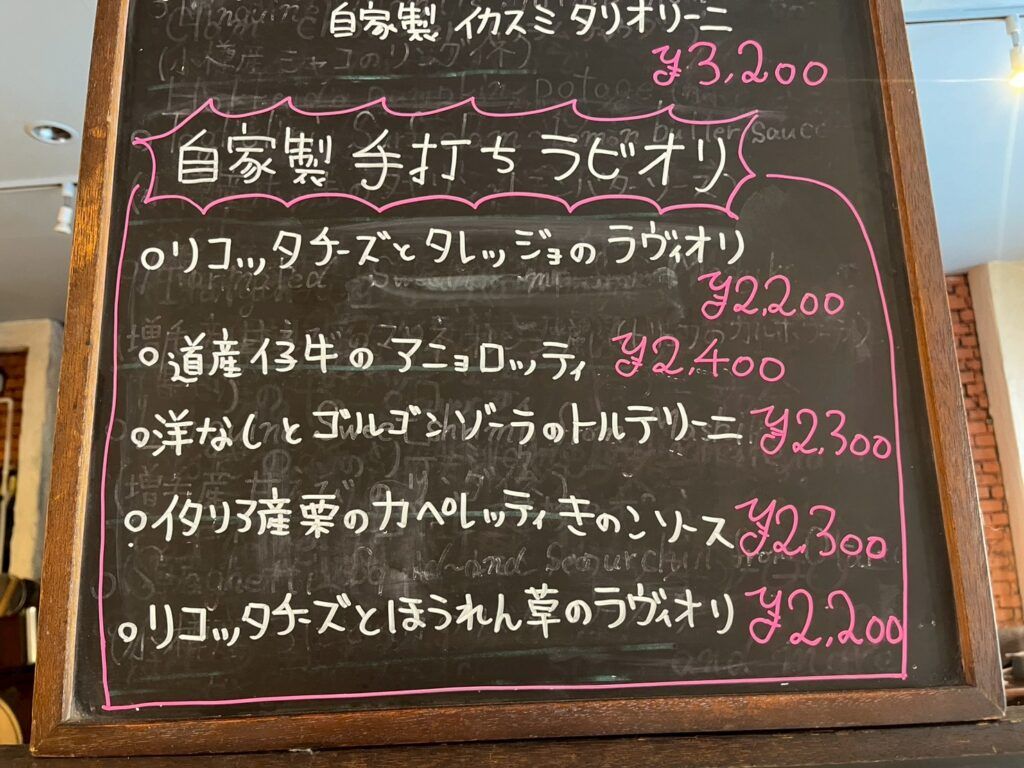 自家製 イカスミ タリオリーニ
¥3,200
自家製 手打ち ラビオリ
○リコッタチーズとタレッジョのラヴィオリ
¥2,200
○道産仔牛のアニョロッティ ¥2,400
○洋なしとゴルゴンゾーラのトルテリーニ ¥2,300
○イタリア産栗のカペレッティきのこソース ¥2,300
○リコッタチーズとほうれん草のラヴィオリ ¥2,200